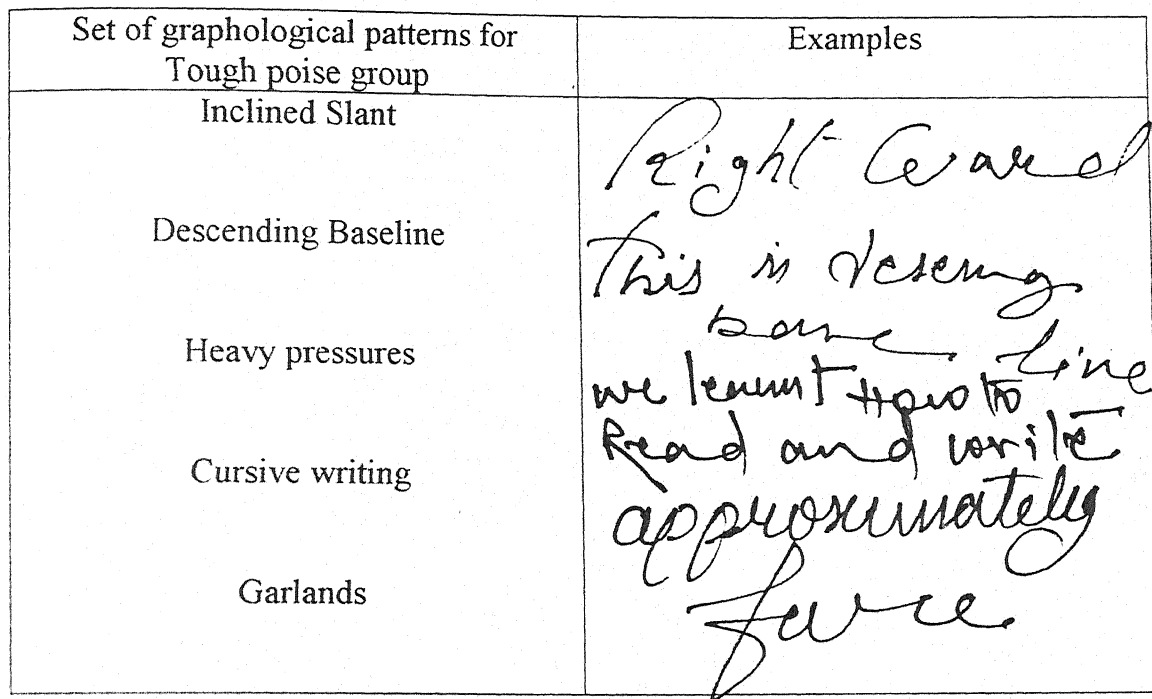 Set of graphological patterns for
Tough poise group
Examples
Inclined Slant
Right Ward
Descending Baseline
This is
Line
Heavy pressures
we learnt How to
Read and write
Cursive writing
approximately
Garlands